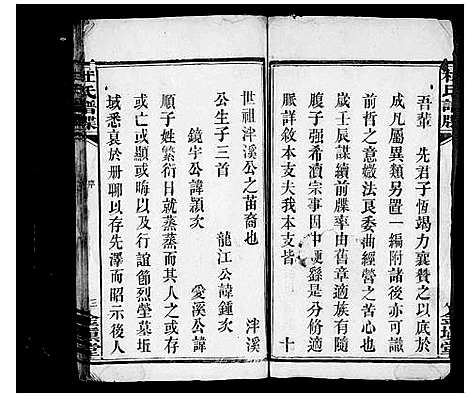 杜氏譜牒
吾輩　先君子恆竭力襄贊之以底於
成凡屬異類另置一編附諸後亦可識
前哲之意嫩法良委曲經營之苦心也
歲壬辰謀續前牒率由舊章適族中有
腹子强希瀆宗事因　是分脩適
脈詳敘本支夫我本支皆　十
世祖泮溪公之苗裔也　泮溪
公生子三首　龍江公諱鍾次
鏡宇公諱潁次　愛溪公諱
順子姓繁衍日就蒸蒸而其人之或存
或亡或顯或晦以及行誼節烈塋墓坵
域悉哀於册聊以存先澤而昭示後人
杜氏譜牒
序
三